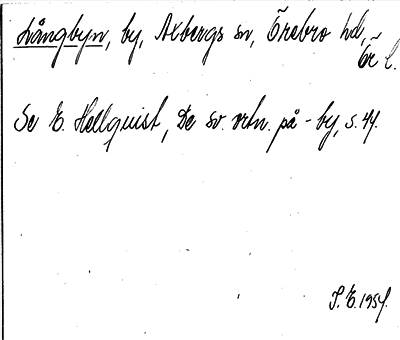 Långbyn, by, Axbergs sn, Örebro hd,
Ör l.
Se E. Hellquist, De sv. ortn. på -by, s. 44.
S. E. 1954.